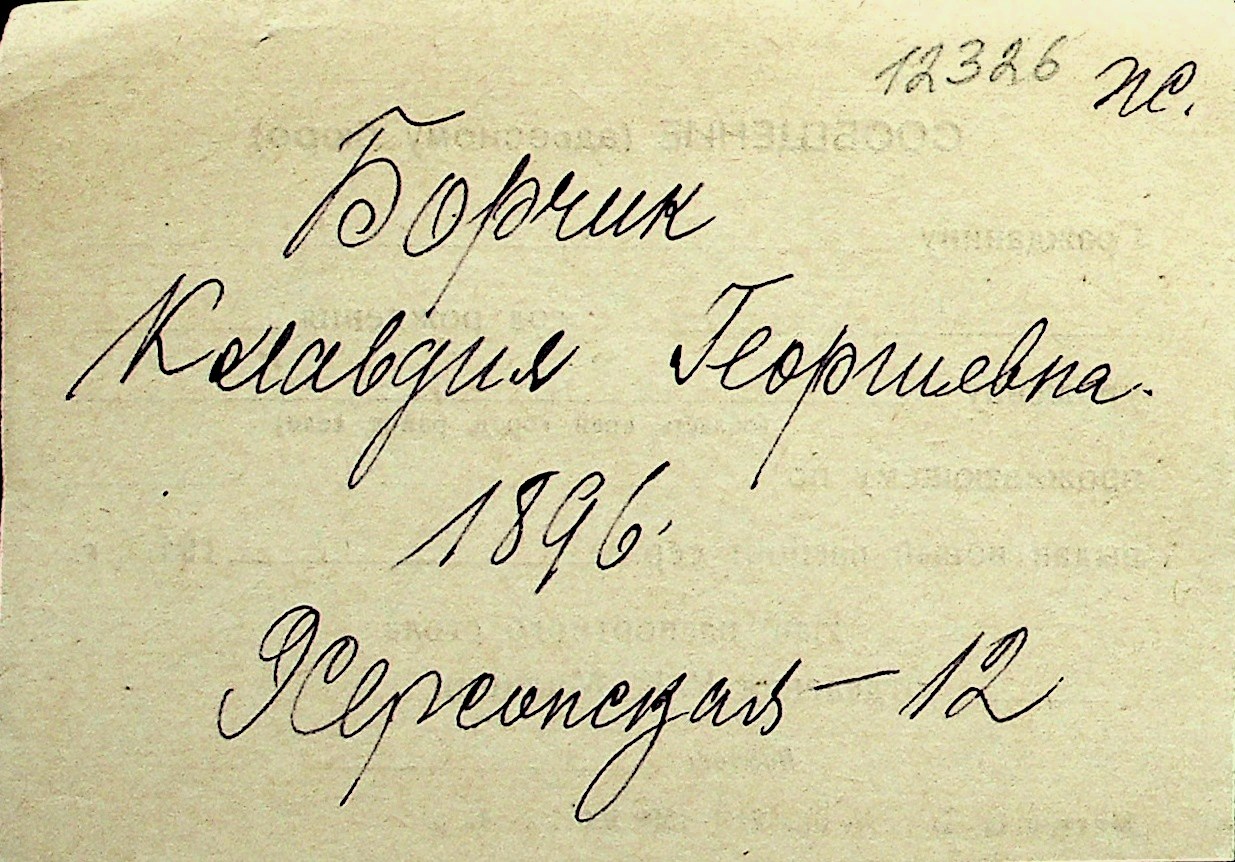 12326 пс.
Борчик
Клавдия Георгиевна.
1896.
Херсонская — 12